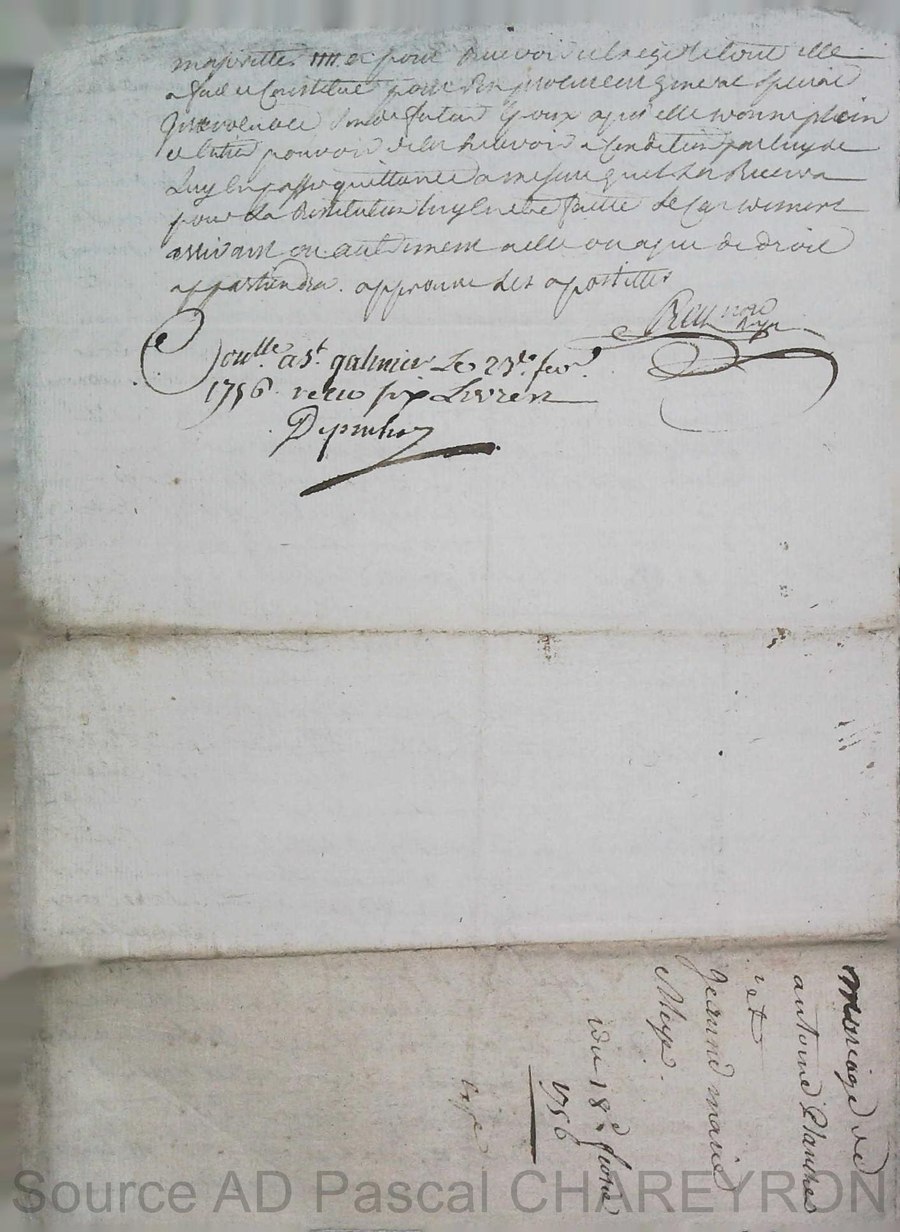 majorittes //// et pour Recevoir le legt de tout elle
a fait et Constitué pour son procureur general special
Irrevocable son dit futur Epoux a qui elle donne plein
et entier pouvoir de les Recevoir a Condition par luy de
Luy En passer quittance a mesure quil Les Recevra
pour La Restitution luy En etre faitte le Cas
arrivant ou autrement a elle ou a qui de droit
appartiendra. approuvé les apostilles
Reynaud
Coulle a St galmier Le 23e fevr.
1756 recu six Livres
Mariage de
antoine Planche
et
Jeanne marie
du 18e fevrie
1756
Source AD Pascal CHAREYRON